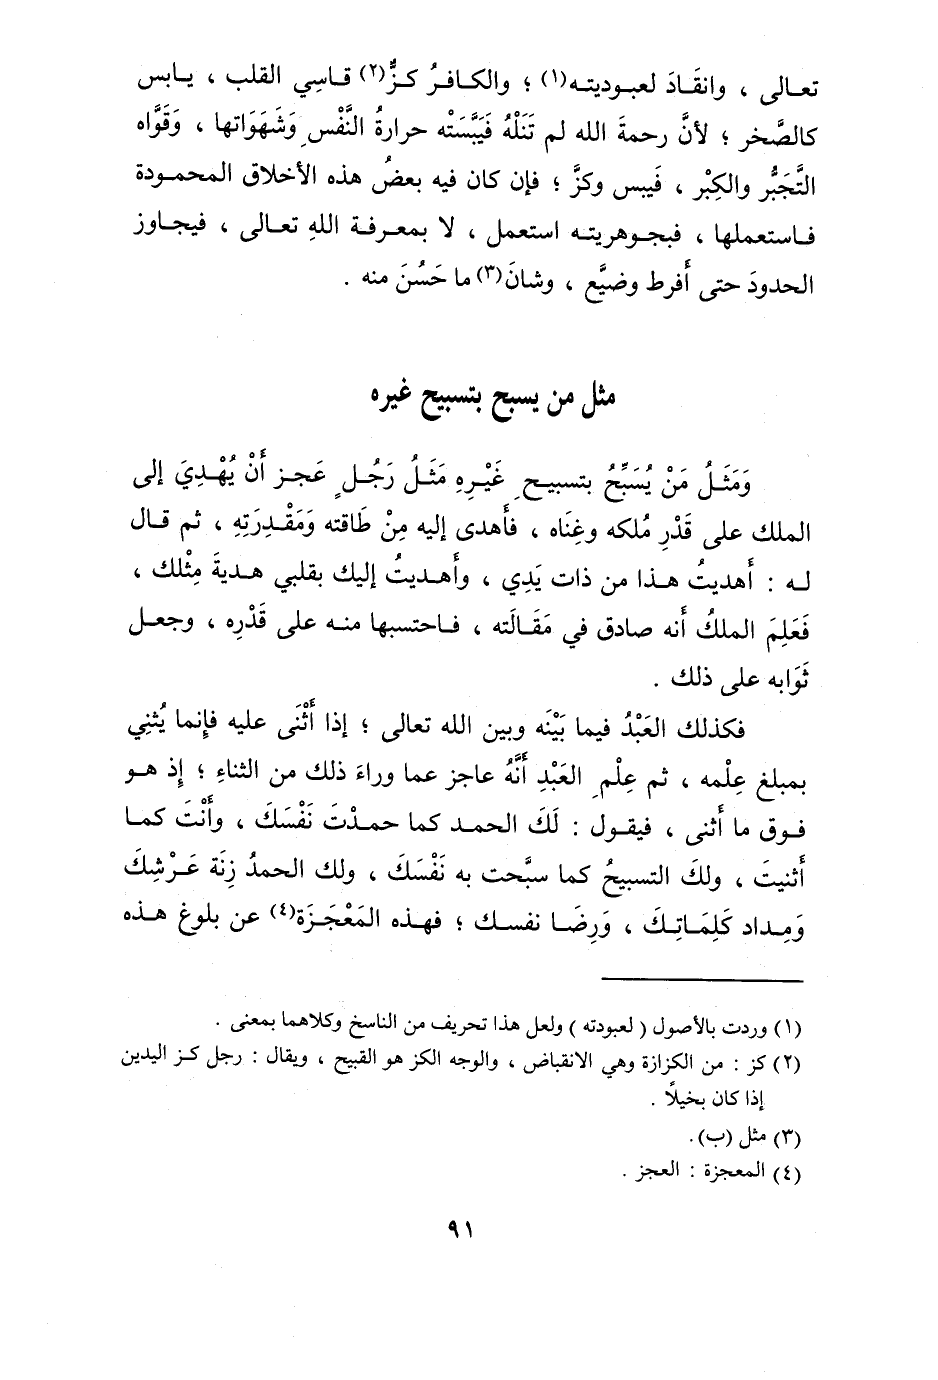 تعالى ، وانقَادَ لعبوديته(١) ؛ والكافرُ كزٌّ(٢) قاسِي القلب ، يابس
كالصَّخر ؛ لأنَّ رحمةَ الله لم تَنَلْهُ فَيَبَّسَتْه حرارةُ النَّفْسِ وَشَهَوَاتها ، وَقَوَّاه
التَّجَبُّر والكِبْر ، فَيبس وكزَّ ؛ فإن كان فيه بعضُ هذه الأخلاق المحمودة
فاستعملها ، فبجوهريته استعمل ، لا بمعرفة اللهِ تعالى ، فيجاوز
الحدودَ حتى أَفرط وضيَّع ، وشانَ(٣) ما حَسُنَ منه .
مثل من يسبح بتسبيح غيره
وَمَثَلُ مَنْ يُسَبِّحُ بتسبيحِ غَيْرِهِ مَثَلُ رَجُلٍ عَجز أَنْ يُهْدِيَ إلى
الملك على قَدْرِ مُلكه وغِنَاه ، فأَهدى إليه مِنْ طَاقته وَمَقْدِرَتِهِ ، ثم قال
له : أَهديتُ هذا من ذات يَدِي ، وأَهديتُ إليك بقلبي هديةَ مِثْلك ،
فَعَلِمَ الملكُ أَنه صادق في مَقَالَته ، فاحتسبها منه على قَدْرِه ، وجعل
ثَوَابه على ذلك .
فكذلك العَبْدُ فيما بَيْنَه وبين الله تعالى ؛ إذا أَثْنَى عليه فإِنما يُثنِي
بمبلغ عِلْمه ، ثم عِلْمِ العَبْدِ أَنَّهُ عاجز عما وراءَ ذلك من الثناءِ ؛ إِذ هو
فوق ما أَثنى ، فيقول : لَكَ الحمد كما حمدْتَ نَفْسَكَ ، وأَنْتَ كما
أَثنيتَ ، ولكَ التسبيحُ كما سبَّحت به نَفْسَكَ ، ولك الحمدُ زِنَة عَرْشِكَ
وَمِداد كَلِمَاتِكَ ، وَرِضَا نفسك ؛ فهذه المَعْجَزَة(٤) عن بلوغ هذه
(١) وردت بالأصول ( لعبودته ) ولعل هذا تحريف من الناسخ وكلاهما بمعنى .
(٢) كز : من الكزازة وهي الانقباض ، والوجه الكز هو القبيح ، ويقال : رجل كز اليدين
إذا كان بخيلاً .
(٣) مثل (ب).
(٤) المعجزة : العجز .
٩١